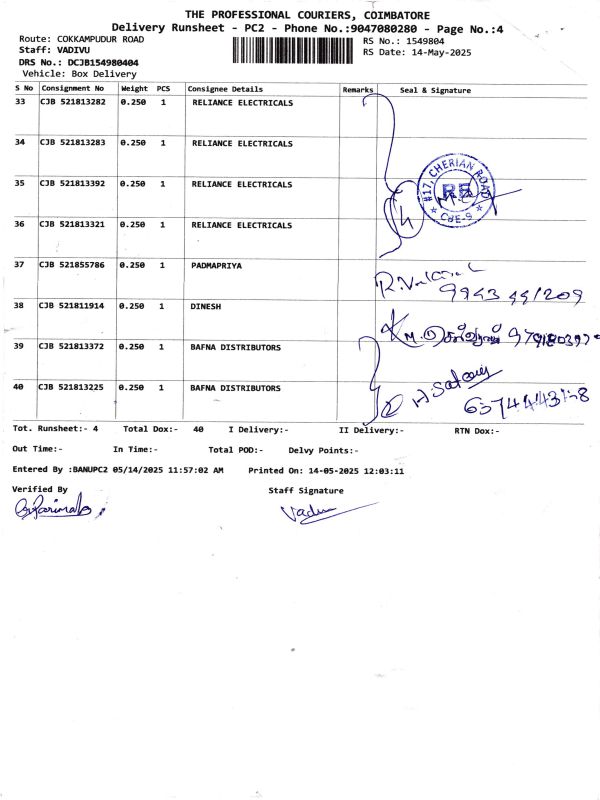 THE PROFESSIONAL COURIERS, COIMBATORE
Delivery Runsheet - PC2 - Phone No.:9047080280 - Page No.:4
Route: COKKAMPUDUR ROAD
RS No.: 1549804
Staff: VADIVU
RS Date: 14-May-2025
DRS No.: DCJB154980404
Vehicle: Box Delivery
S No Consignment No Weight PCS Consignee Details Remarks Seal & Signature
33 CJB 521813282 0.250 1 RELIANCE ELECTRICALS
34 CJB 521813283 0.250 1 RELIANCE ELECTRICALS
35 CJB 521813392 0.250 1 RELIANCE ELECTRICALS
#17, CHERIAN ROAD
RE
★ CBE-9 ★
4
36 CJB 521813321 0.250 1 RELIANCE ELECTRICALS
37 CJB 521855786 0.250 1 PADMAPRIYA
38 CJB 521811914 0.250 1 DINESH
39 CJB 521813372 0.250 1 BAFNA DISTRIBUTORS
40 CJB 521813225 0.250 1 BAFNA DISTRIBUTORS
Tot. Runsheet:- 4 Total Dox:- 40 I Delivery:- II Delivery:- RTN Dox:-
Out Time:- In Time:- Total POD:- Delvy Points:-
Entered By :BANUPC2 05/14/2025 11:57:02 AM Printed On: 14-05-2025 12:03:11
Verified By Staff Signature